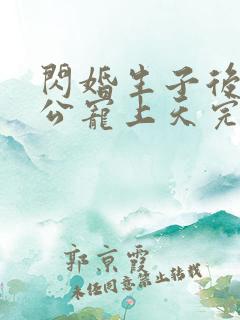 閃婚生子後
公寵上天完
郭京霞
未經同意禁止轉載